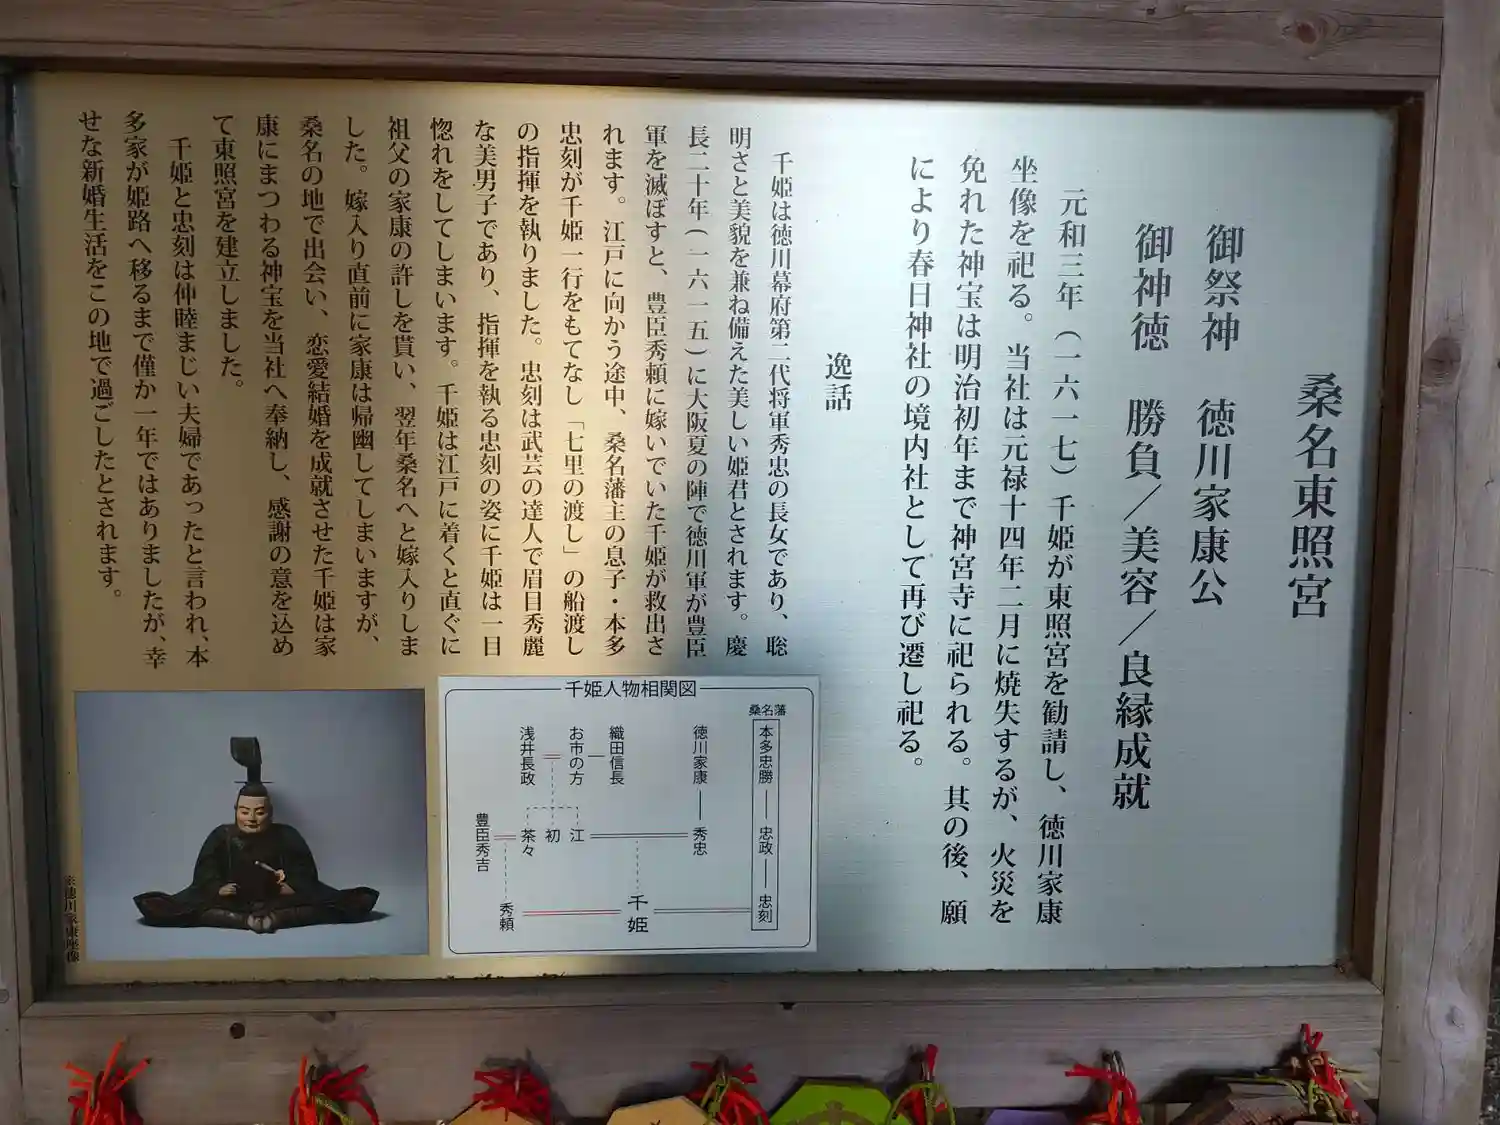 桑名東照宮
御祭神 徳川家康公
御神徳 勝負／美容／良縁成就
元和三年（一六一七）千姫が東照宮を勧請し、徳川家康
坐像を祀る。当社は元禄十四年二月に焼失するが、火災を
免れた神宝は明治初年まで神宮寺に祀られる。其の後、願
により春日神社の境内社として再び遷し祀る。
逸話
千姫は徳川幕府第二代将軍秀忠の長女であり、聡
明さと美貌を兼ね備えた美しい姫君とされます。慶
長二十年(一六一五)に大阪夏の陣で徳川軍が豊臣
軍を滅ぼすと、豊臣秀頼に嫁いでいた千姫が救出さ
れます。江戸に向かう途中、桑名藩主の息子・本多
忠刻が千姫一行をもてなし「七里の渡し」の船渡し
の指揮を執りました。忠刻は武芸の達人で眉目秀麗
な美男子であり、指揮を執る忠刻の姿に千姫は一目
惚れをしてしまいます。千姫は江戸に着くと直ぐに
祖父の家康の許しを貰い、翌年桑名へと嫁入りしま
した。嫁入り直前に家康は帰幽してしまいますが、
桑名の地で出会い、恋愛結婚を成就させた千姫は家
康にまつわる神宝を当社へ奉納し、感謝の意を込め
て東照宮を建立しました。
千姫と忠刻は仲睦まじい夫婦であったと言われ、本
多家が姫路へ移るまで僅か一年ではありましたが、幸
せな新婚生活をこの地で過ごしたとされます。
千姫人物相関図
桑名藩
本多忠勝
忠政
忠刻
徳川家康
秀忠
織田信長
お市の方
浅井長政
江
初
茶々
豊臣秀吉
千姫
秀頼
※徳川家康座像